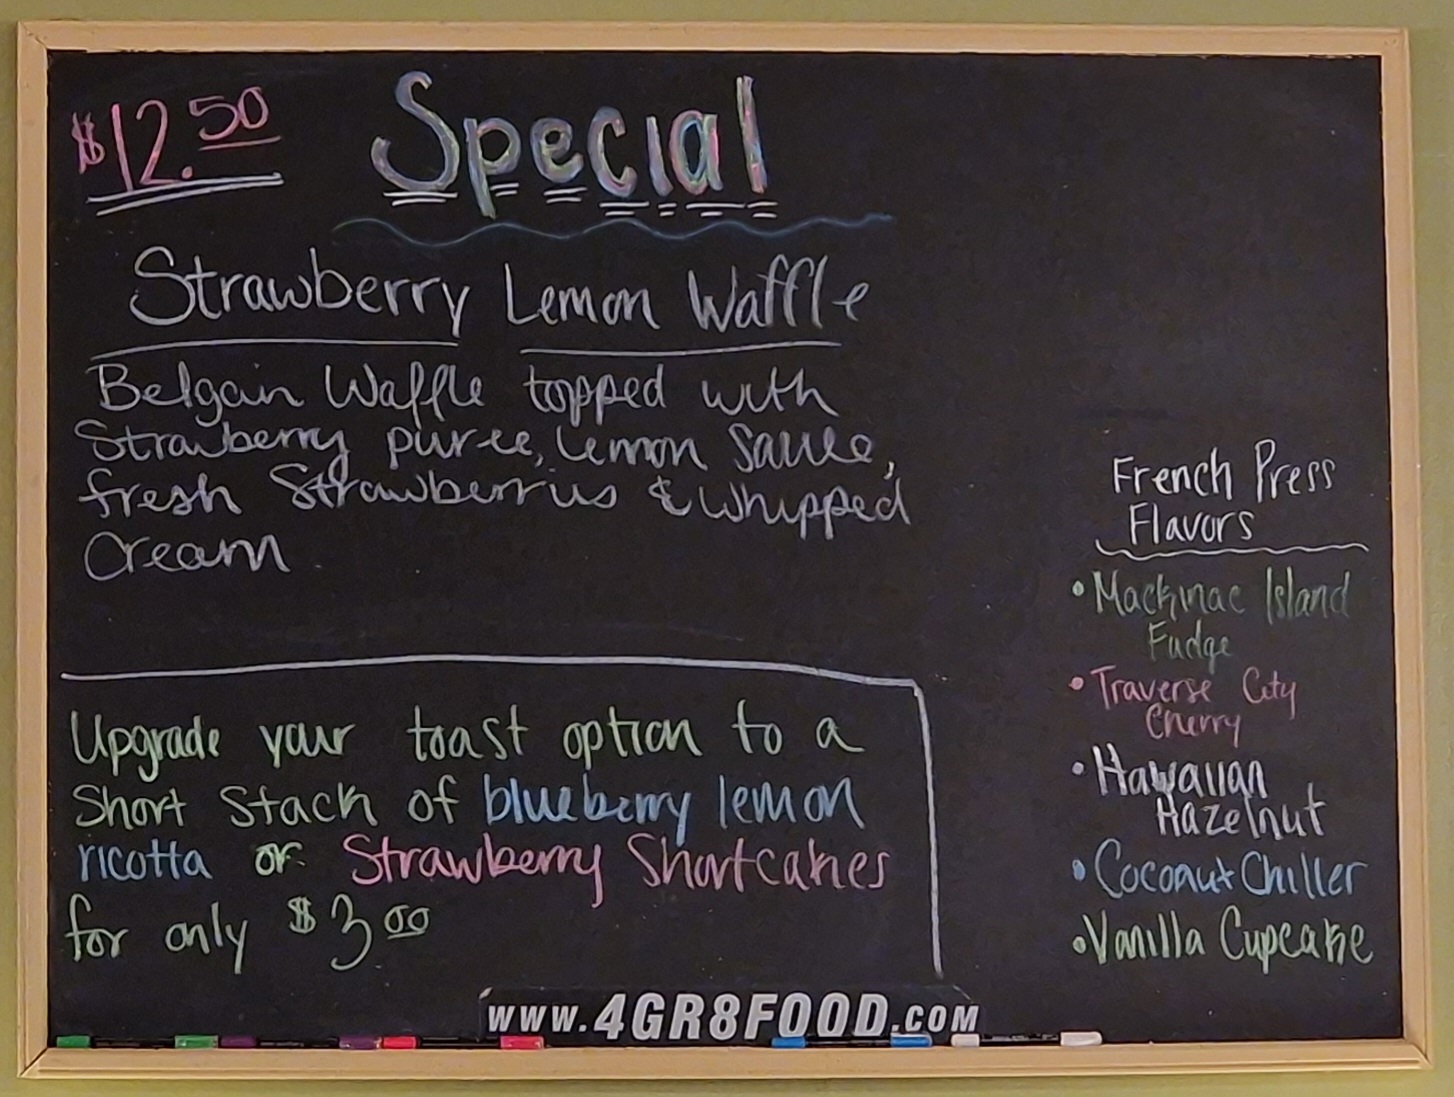 $12.50
Special
Strawberry Lemon Waffle
Belgain Waffle topped with
Strawberry puree, Lemon Sauce,
fresh Strawberries & Whipped
Cream
Upgrade your toast option to a
Short Stack of blueberry lemon
ricotta or Strawberry Shortcakes
for only $3.00
French Press
Flavors
• Mackinac Island
Fudge
• Traverse City
Cherry
• Hawaiian
Hazelnut
• Coconut Chiller
• Vanilla Cupcake
www.4GR8FOOD.com